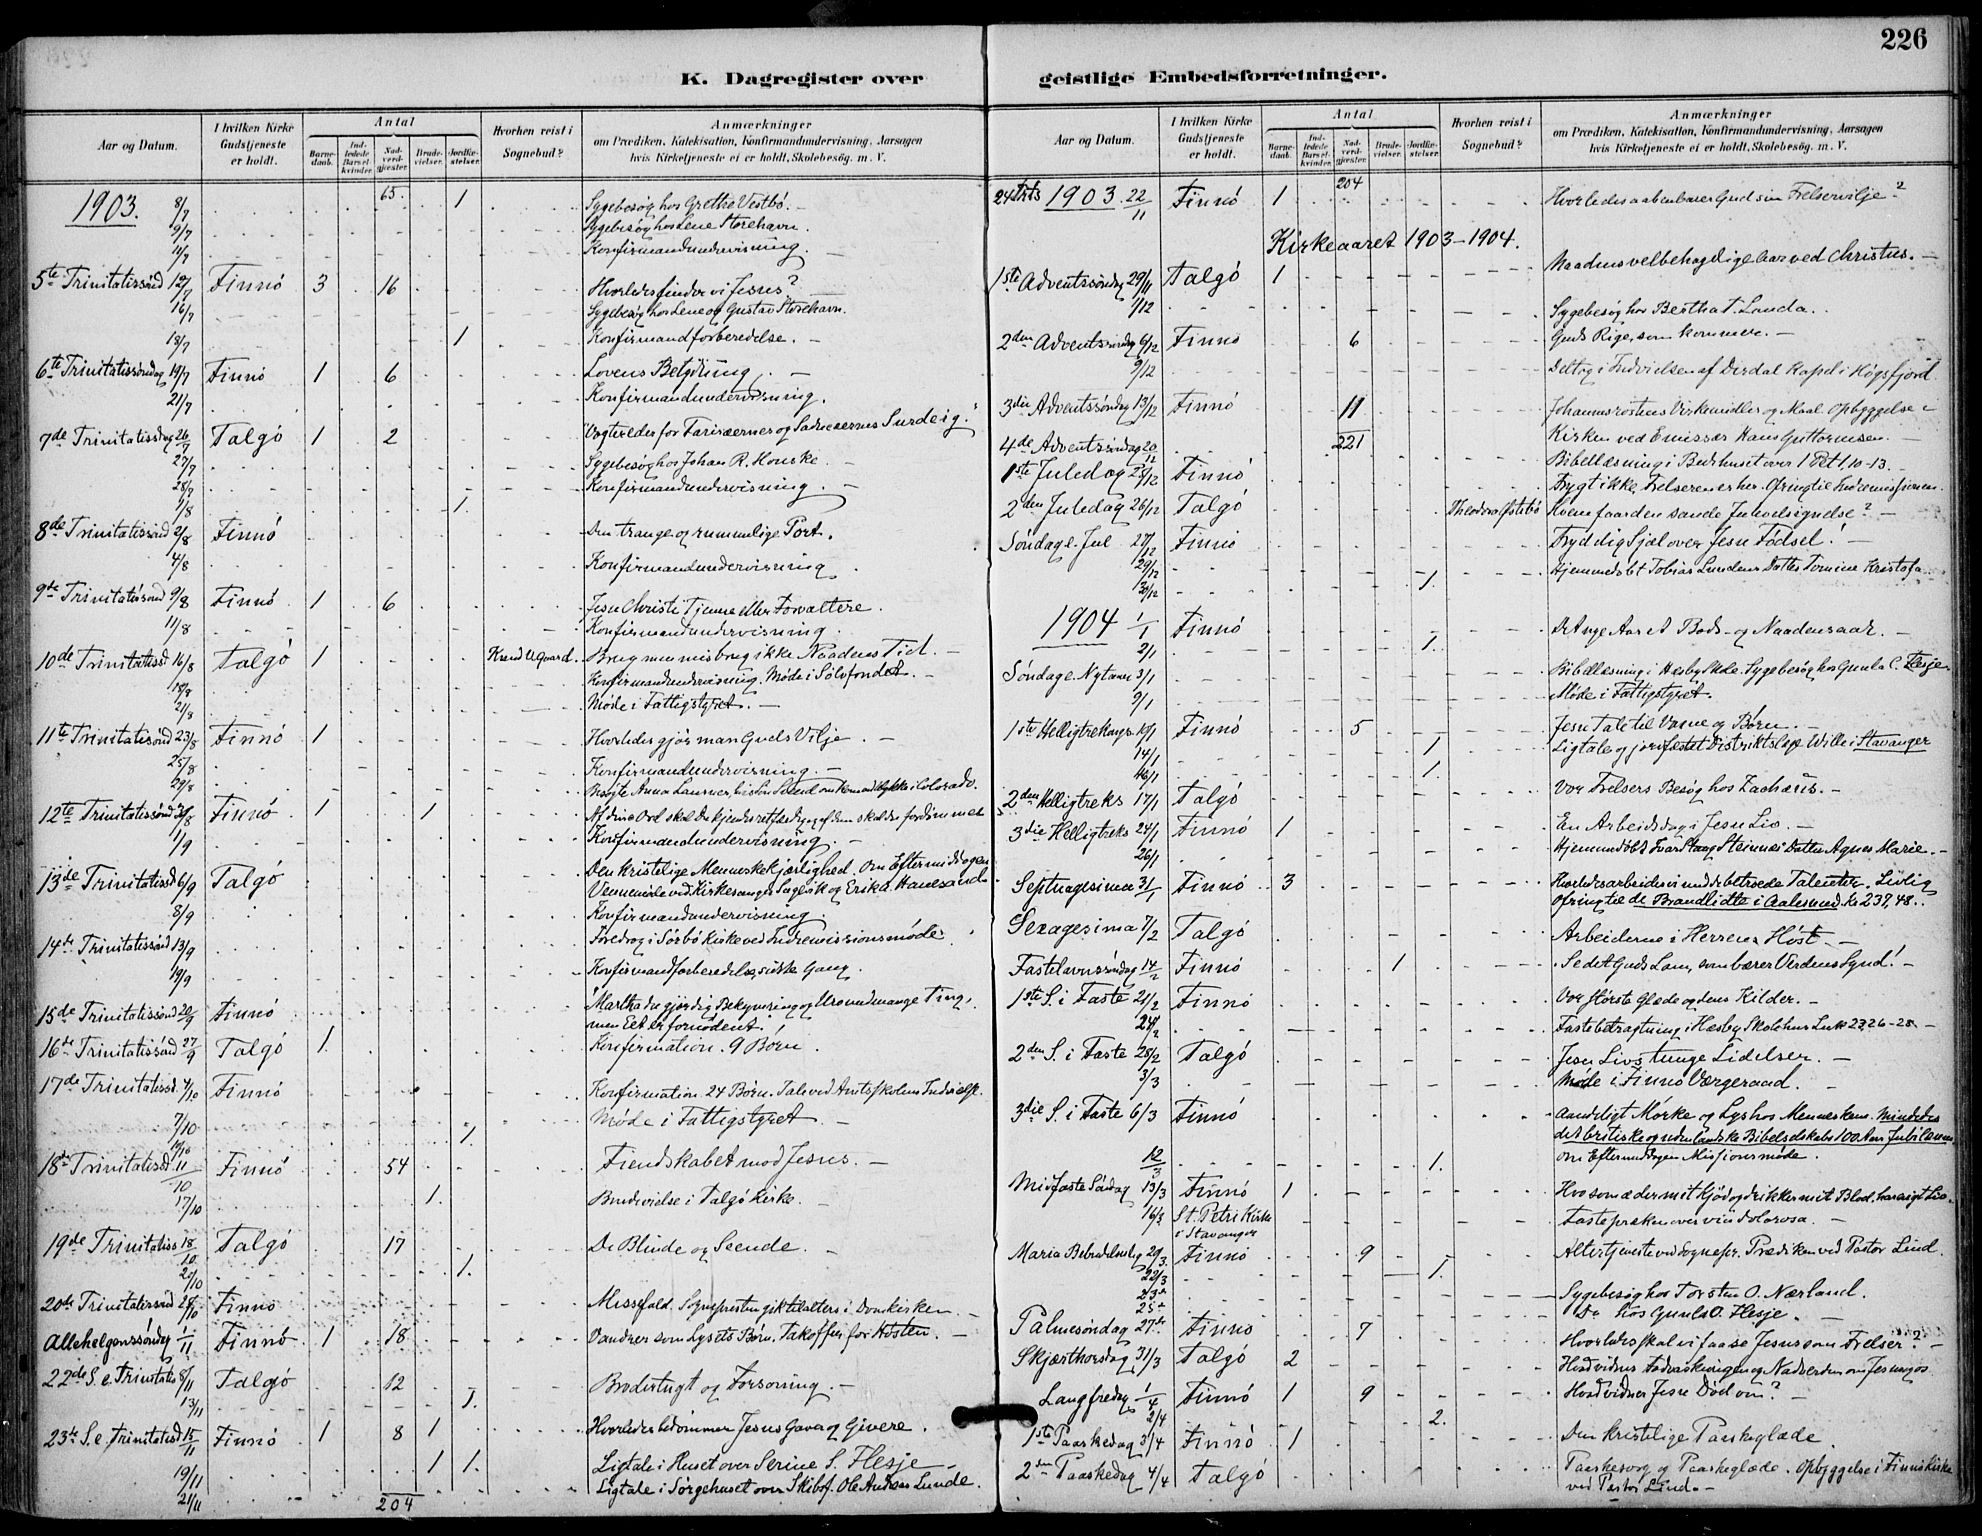 226
K. Dagregister over
Aar og Datum.
I hvilken Kirke Gudstjeneste er holdt.
Antal
Barnedaab.
Indledede Barselkvinder.
Nadverdgjæster.
Brudevielser.
Jordfæstelser.
Hvorhen reist i Sognebud?
Anmærkninger
om Prædiken, Katekisation, Konfirmandundervisning, Aarsagen
hvis Kirketjeneste ei er holdt, Skolebesøg. m. V.
65.
1903. 8/7 1 Sygebesøg hos Grethe Vestbø.
9/7 Sygebesøg hos Lene Storehavn.
11/7 Konfirmandundervisning.
5te Trinitatissønd 12/7 Finnö 3 16 Hvorledes finder vi Jesus?
16/7 Sygebesøg hos Lene og Gustav Storehavn.
18/7 1 Konfirmandforberedelse.
6te Trinitatissøndag 19/7 Finnö 1 6 Lovens Betydning.
21/7 Konfirmandundervisning.
7de Trinitatissdag 26/7 Talgö 1 2 Vogter eder for Farisæernes og Saducæernes Surdeig.
27/7 Sygebesøg hos Johan R. Hauske.
28/7 Konfirmandundervisning.
1/8 1.
8de Trinitatissönd 2/8 Finnö Den trange og rummelige Port.
4/8 Konfirmandundervisning
9de Trinitatissönd 9/8 Finnö 1 6 Jesu Christi Tjenere eller Forvaltere.
11/8 Konfirmandundervisning.
10de Trinitatissd 16/8 Talgö 1 Brug men misbrug ikke Naadens Tid.
18/8 Konfirmandundervisning. Møde i Sølvfondet.
21/8 Møde i Fattigstyret.
11te Trinitatissönd 23/8 Finnö 1 Hvorledes gjør man Guds Vilje.
25/8 Konfirmandundervisning.
29/8
12te Trinitatissönd 30/8 Finnö 1 1 Af dine Ord skal du kjendes retfærdig og af dem skal du fordömmes
1/9 Konfirmandundervisning.
13de Trinitatissd 6/9 Talgö Den kristelige Menneskekjærlighed. Om Eftermiddagen
8/9 Konfirmandundervisning.
14de Trinitatissönd 13/9 Foredrag i Sørbö Kirke ved Indremissionsmøde.
19/9 Konfirmandforberedelse sidste Gang.
15de Trinitatissönd 20/9 Finnö Martha du gjør dig Bekymring og Uro med mange Ting,
men Eet er fornødent.
16de Trinitatissönd 27/9 Talgö 1. Konfirmation. 9 Börn.
17de Trinitatissd. 4/10 Finnö Konfirmation. 24 Börn. Tale ved Amtsskolens Indvielse.
7/10 Møde i Fattigstyret
10/10 1.
18de Trinitatissd 11/10 Finnö 54 Fiendskabet mod Jesus.
17/10 1. Brudevielse i Talgö Kirke.
19de Trinitatiss 18/10 Talgö 17 De Blinde og Seende.
20/10 1.
20de Trinitatissönd 25/10 Finnö Messefald. Sognepresten gik til alters i Domkirken.
Allehelgenssöndag 1/11 Finnö 1 18 Vandrer som Lysets Börn. Takoffer for Høsten.
22de S. e. Trinitatis 8/11 Talgö 12 Brodertugt og Forsoning.
13/11 1.
23de S. e. Trinitatisd 15/11 Finnö 1 8 1 Hvorledes bedømmer Jesus Gaver og Givere.
19/11 1 1. Ligtale i Huset over Serine S. Flesje
21/11 Ligtale i Sørgehuset over Skibsf. Ole Andreas Lunde.
204
geistlige Embedsforretninger.
Aar og Datum.
I hvilken Kirke Gudstjeneste er holdt.
Antal
Barnedaab.
Indledede Barselkvinder.
Nadverdgjæster.
Brudevielser.
Jordfæstelser.
Hvorhen reist i Sognebud?
Anmærkninger
om Prædiken, Katekisation, Konfirmandundervisning, Aarsagen
hvis Kirketjeneste ei er holdt, Skolebesøg. m. V.
204
24 Trts 1903 22/11 Finnö 1 Hvorledes aabenbarer Gud sin Frelservilje?
Kirkeaaret 1903–1904.
1ste Adventssöndag 29/11 Talgö 1 Naadens velbehagelige Aar ved Christus.
1/12 Sygebesøg hos Bertha T. Landa.
2den Adventssöndag 6/12 Finnö 6 Guds Rige, som kommer.
9/12 Deltog i Indvielsen af Dirdal Kapel i Høgsfjord
3die Adventssöndag 13/12 Finnö 11 Johannesröstens Virkemidler og Maal. Opbyggelse i
221 Kirken ved Emissær Hans Guttormsen.
4de Adventssöndag 20/12 Bibellæsning i Bedehuset over 1 Pet 1,10-13.
1ste Juledag 25/12 Finnö Frygt ikke, Frelseren er her. Ofring til Indremissionen.
2den Juledag 26/12 Talgö Theodora Østebö Hvem faar den sande Julevelsignelse?
Søndag e. Jul 27/12 Finnö Fryd dig Sjæl over Jesu Fødsel!
29/12 Hjemmedöbt Tobias Lundens Datter Tomine Kristofa
30/12 1.
1904 1/1 Finnö Det nye Aar et Bods- og Naadensaar.
2/1 1.
Søndag e. Nytaar 3/1 Bibellæsning i Hesby Skole. Sygebesøg hos Gunla C. Flesje
9/1 Møde i Fattigstyret.
1ste Helligtrekongs 10/1 Finnö 5 Jesu Tale til Voxne og Børn.
14/1 1 Ligtale og jordfæstet Distriktslæge Wille i Stavanger
16/1 1.
2den Helligtreks 17/1 Talgö Vor Frelsers Besøg hos Zachæus.
3die Helligtreks 24/1 Finnö 1 En Arbeidsdag i Jesu Liv.
26/1 Datter Agnes Marie.
Septuagesima 31/1 Finnö 3 Hvorledes arbeider vi med de betroede Talenter. Livlig
Ofring til de Brandlidte i Aalesund. Kr 237,48.
Sexagesima 7/2 Talgö Arbeiderne i Herrens Høst.
Fastelavnssöndag 14/2 Finnö 1 Se det Guds Lam, som bærer Verdens Synd!
1ste S. i Faste 21/2 Finnö Vor største Glæde og dens Kilder.
24/2 Fastebetragtning i Hæsby Skolehus Luk 22.26-28
2den S. i Faste 28/2 Talgö Jesu Livs tunge Lidelser.
3/3 Møde i Finnö Værgeraad.
3die S. i Faste 6/3 Finnö Aandeligt Mørke og Lys hos Menneskene. Mindedes
det britiske og udenlandske Bibelselskabs 100 Aars Jubilæum
12/3 1. om Eftermiddagen Missionsmøde.
Midfaste Söndag 13/3 Finnö 1 Hvo som æder mit Kjød og drikker mit Blod, har evigt Liv.
16/3 St. Petri Kirke i Stavanger Fastepræken over via dolorosa.
Maria Bebudelsesdag 20/3 Finnö 9 Altertjeneste ved Sognepr. Prædiken ved Pastor Lind.
22/3 1.
23de Sygebesøg hos Torsten O. Nærland.
25de Do hos Gunla O. Flesje.
Palmesøndag 27de Finnö 7 Hvorledes skal vi faa se Jesus som Frelser?
Skjærthorsdag 31/3 Talgö 2 Hvad vidner Fodvaskningen og Nadverden om Jesus?
Langfredag 1/4 Finnö 1 9 Hvad vidner Jesu Død om?
2/4 2.
1ste Paaskedag 3/4 Finnö 1 Den kristelige Paaskeglæde
2den Paaskedag 4/4 Talgö Paaskesorg og Paaskeglæde. Opbyggelse i Finnö Kirke
ved Pastor Lind.